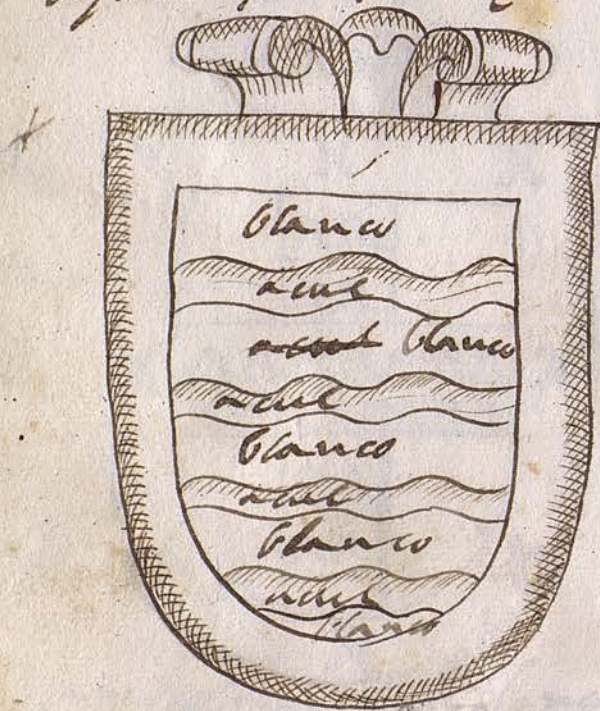 blanco
acul
blanco
acul
blanco
acul
blanco
acul
blanco